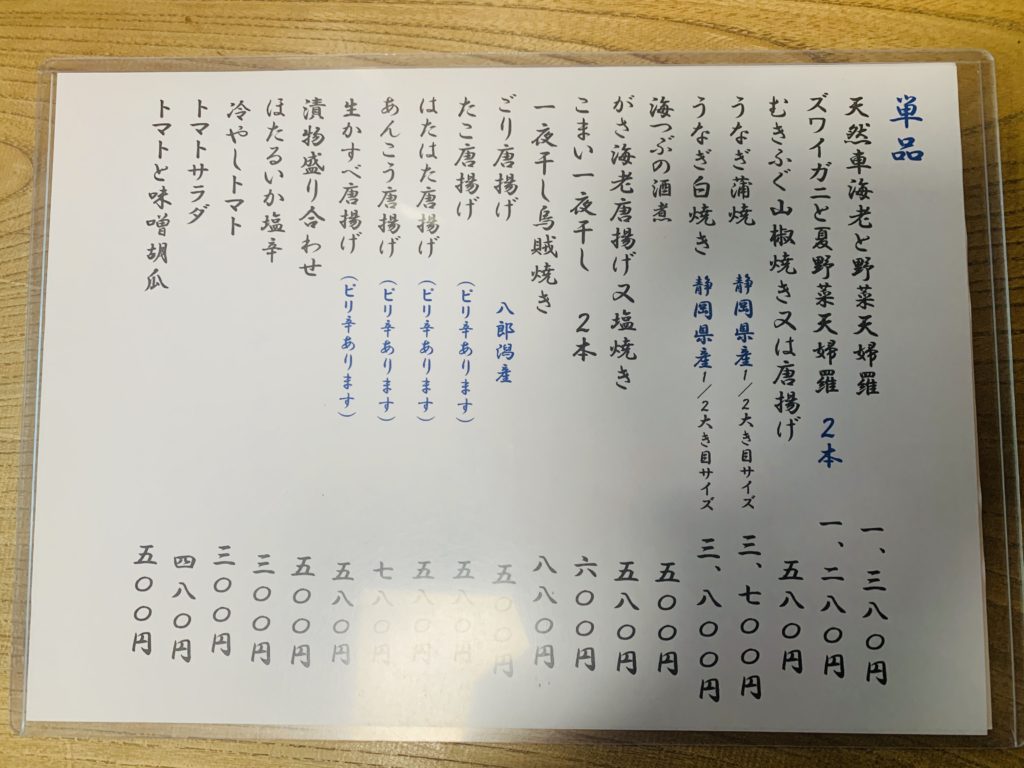 単品
天然車海老と野菜天婦羅 一、三八〇円
ズワイガニと夏野菜天婦羅 2本 一、二八〇円
むきふぐ山椒焼き又は唐揚げ 五八〇円
うなぎ蒲焼 静岡県産1/2大き目サイズ 三、七〇〇円
うなぎ白焼き 静岡県産1/2大き目サイズ 三、八〇〇円
海つぶの酒煮 五〇〇円
がさ海老唐揚げ又塩焼き 五八〇円
こまい一夜干し 2本 六〇〇円
一夜干し烏賊焼き 八八〇円
ごり唐揚げ 八郎潟産 五〇〇円
たこ唐揚げ (ピリ辛あります) 五八〇円
はたはた唐揚げ (ピリ辛あります) 五八〇円
あんこう唐揚げ (ピリ辛あります) 七八〇円
生かすべ唐揚げ (ピリ辛あります) 五八〇円
漬物盛り合わせ 五〇〇円
ほたるいか塩辛 三〇〇円
冷やしトマト 三〇〇円
トマトサラダ 四八〇円
トマトと味噌胡瓜 五〇〇円